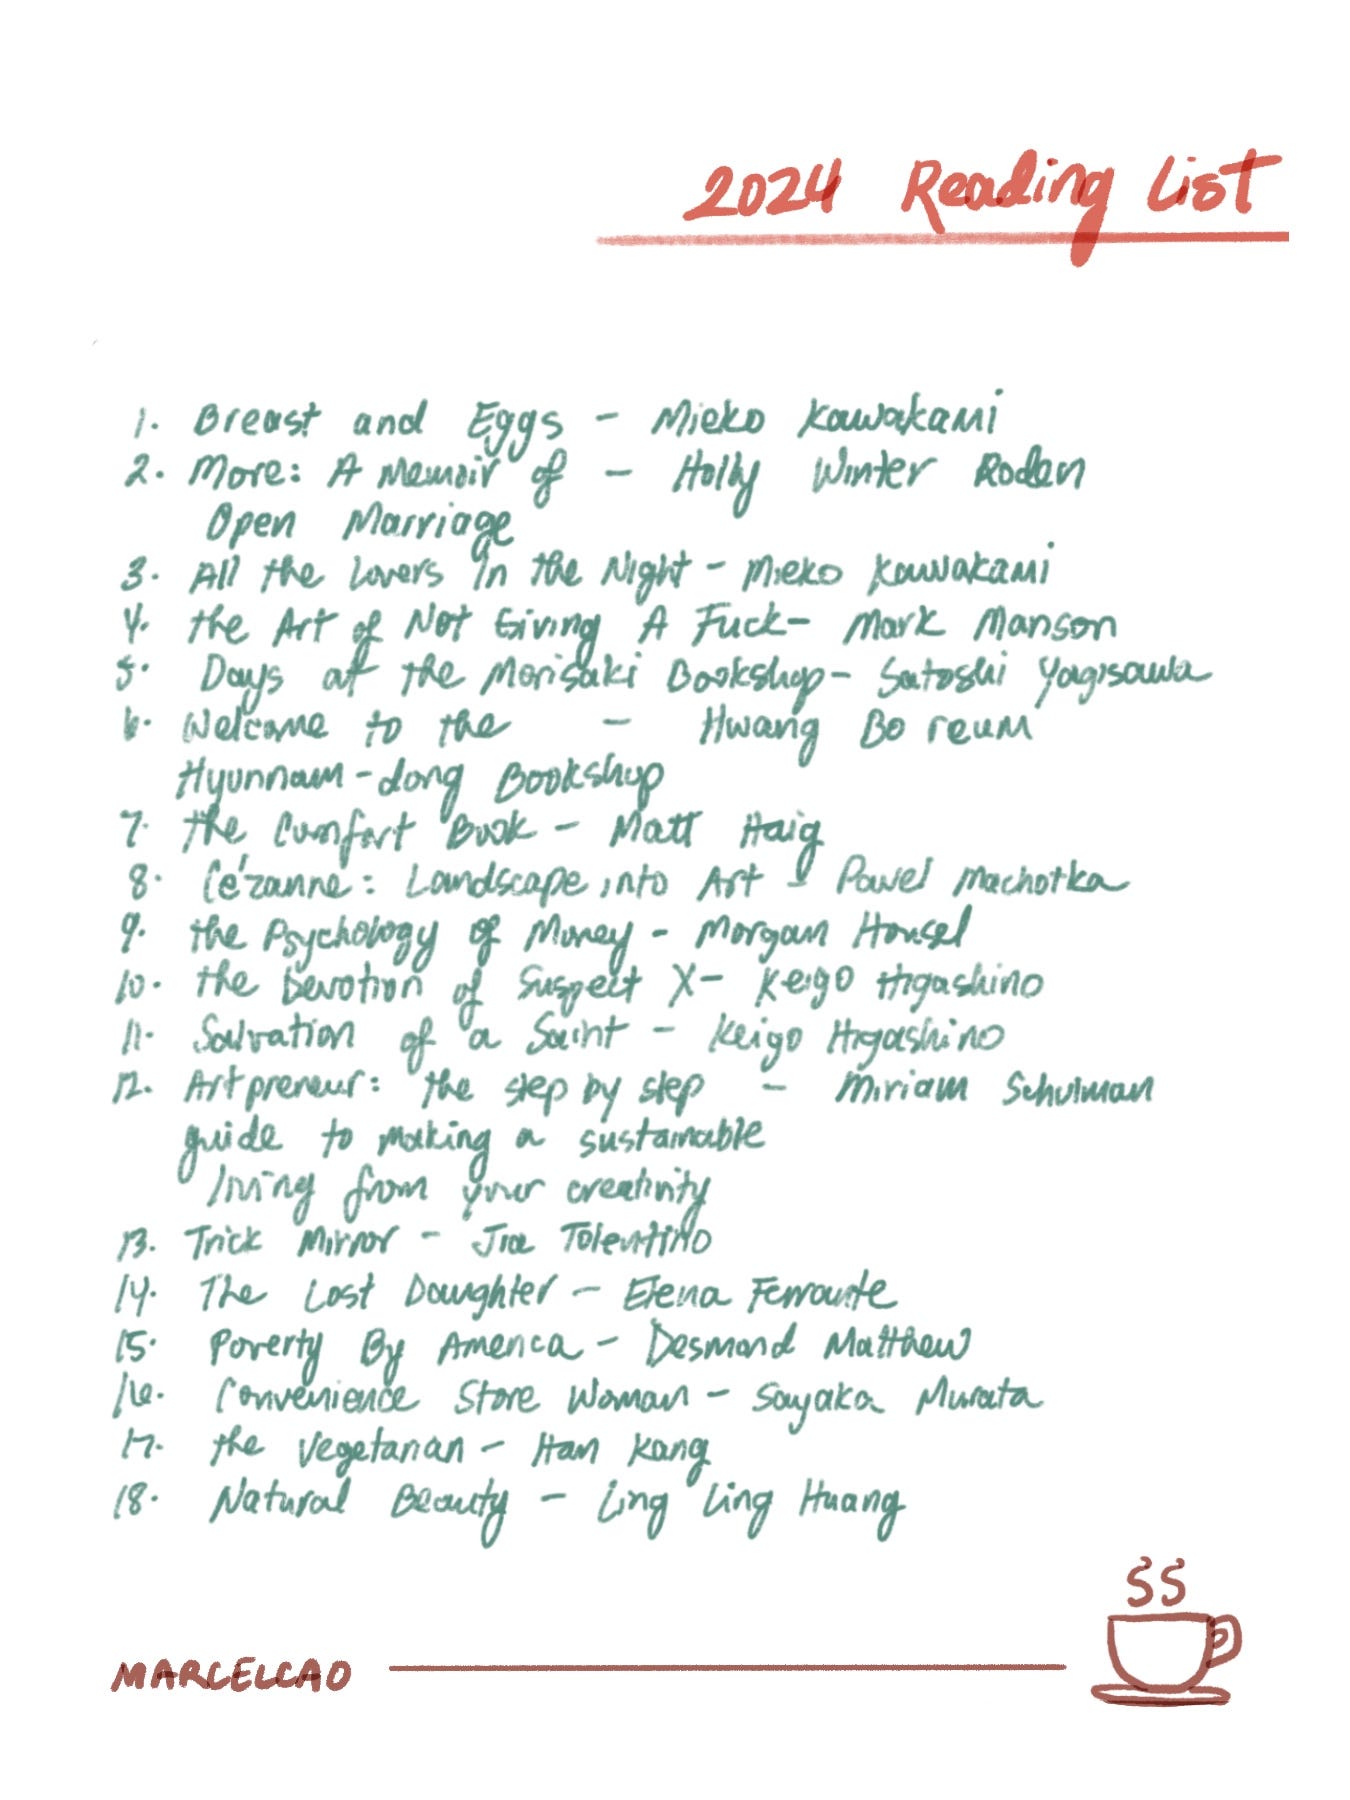 2024 Reading List
1. Breast and Eggs - Mieko Kawakami
2. More: A Memoir of - Holly Winter Roden
Open Marriage
3. All the Lovers in the Night - Mieko Kawakami
4. the Art of Not Giving A Fuck - Mark Manson
5. Days at the Morisaki Bookshop - Satoshi Yagisawa
6. Welcome to the - Hwang Bo reum
Hyunnam-dong Bookshop
7. the Comfort Book - Matt Haig
8. Cézanne: Landscape into Art - Pavel Machotka
9. the Psychology of Money - Morgan Housel
10. the Devotion of Suspect X - Keigo Higashino
11. Salvation of a Saint - Keigo Higashino
12. Artpreneur: the step by step - Miriam Schulman
guide to making a sustainable
living from your creativity
13. Trick Mirror - Jia Tolentino
14. The Lost Daughter - Elena Ferrante
15. Poverty By America - Desmond Matthew
16. Convenience Store Woman - Sayaka Murata
17. the Vegetarian - Han Kang
18. Natural Beauty - Ling Ling Huang
MARCELCAO